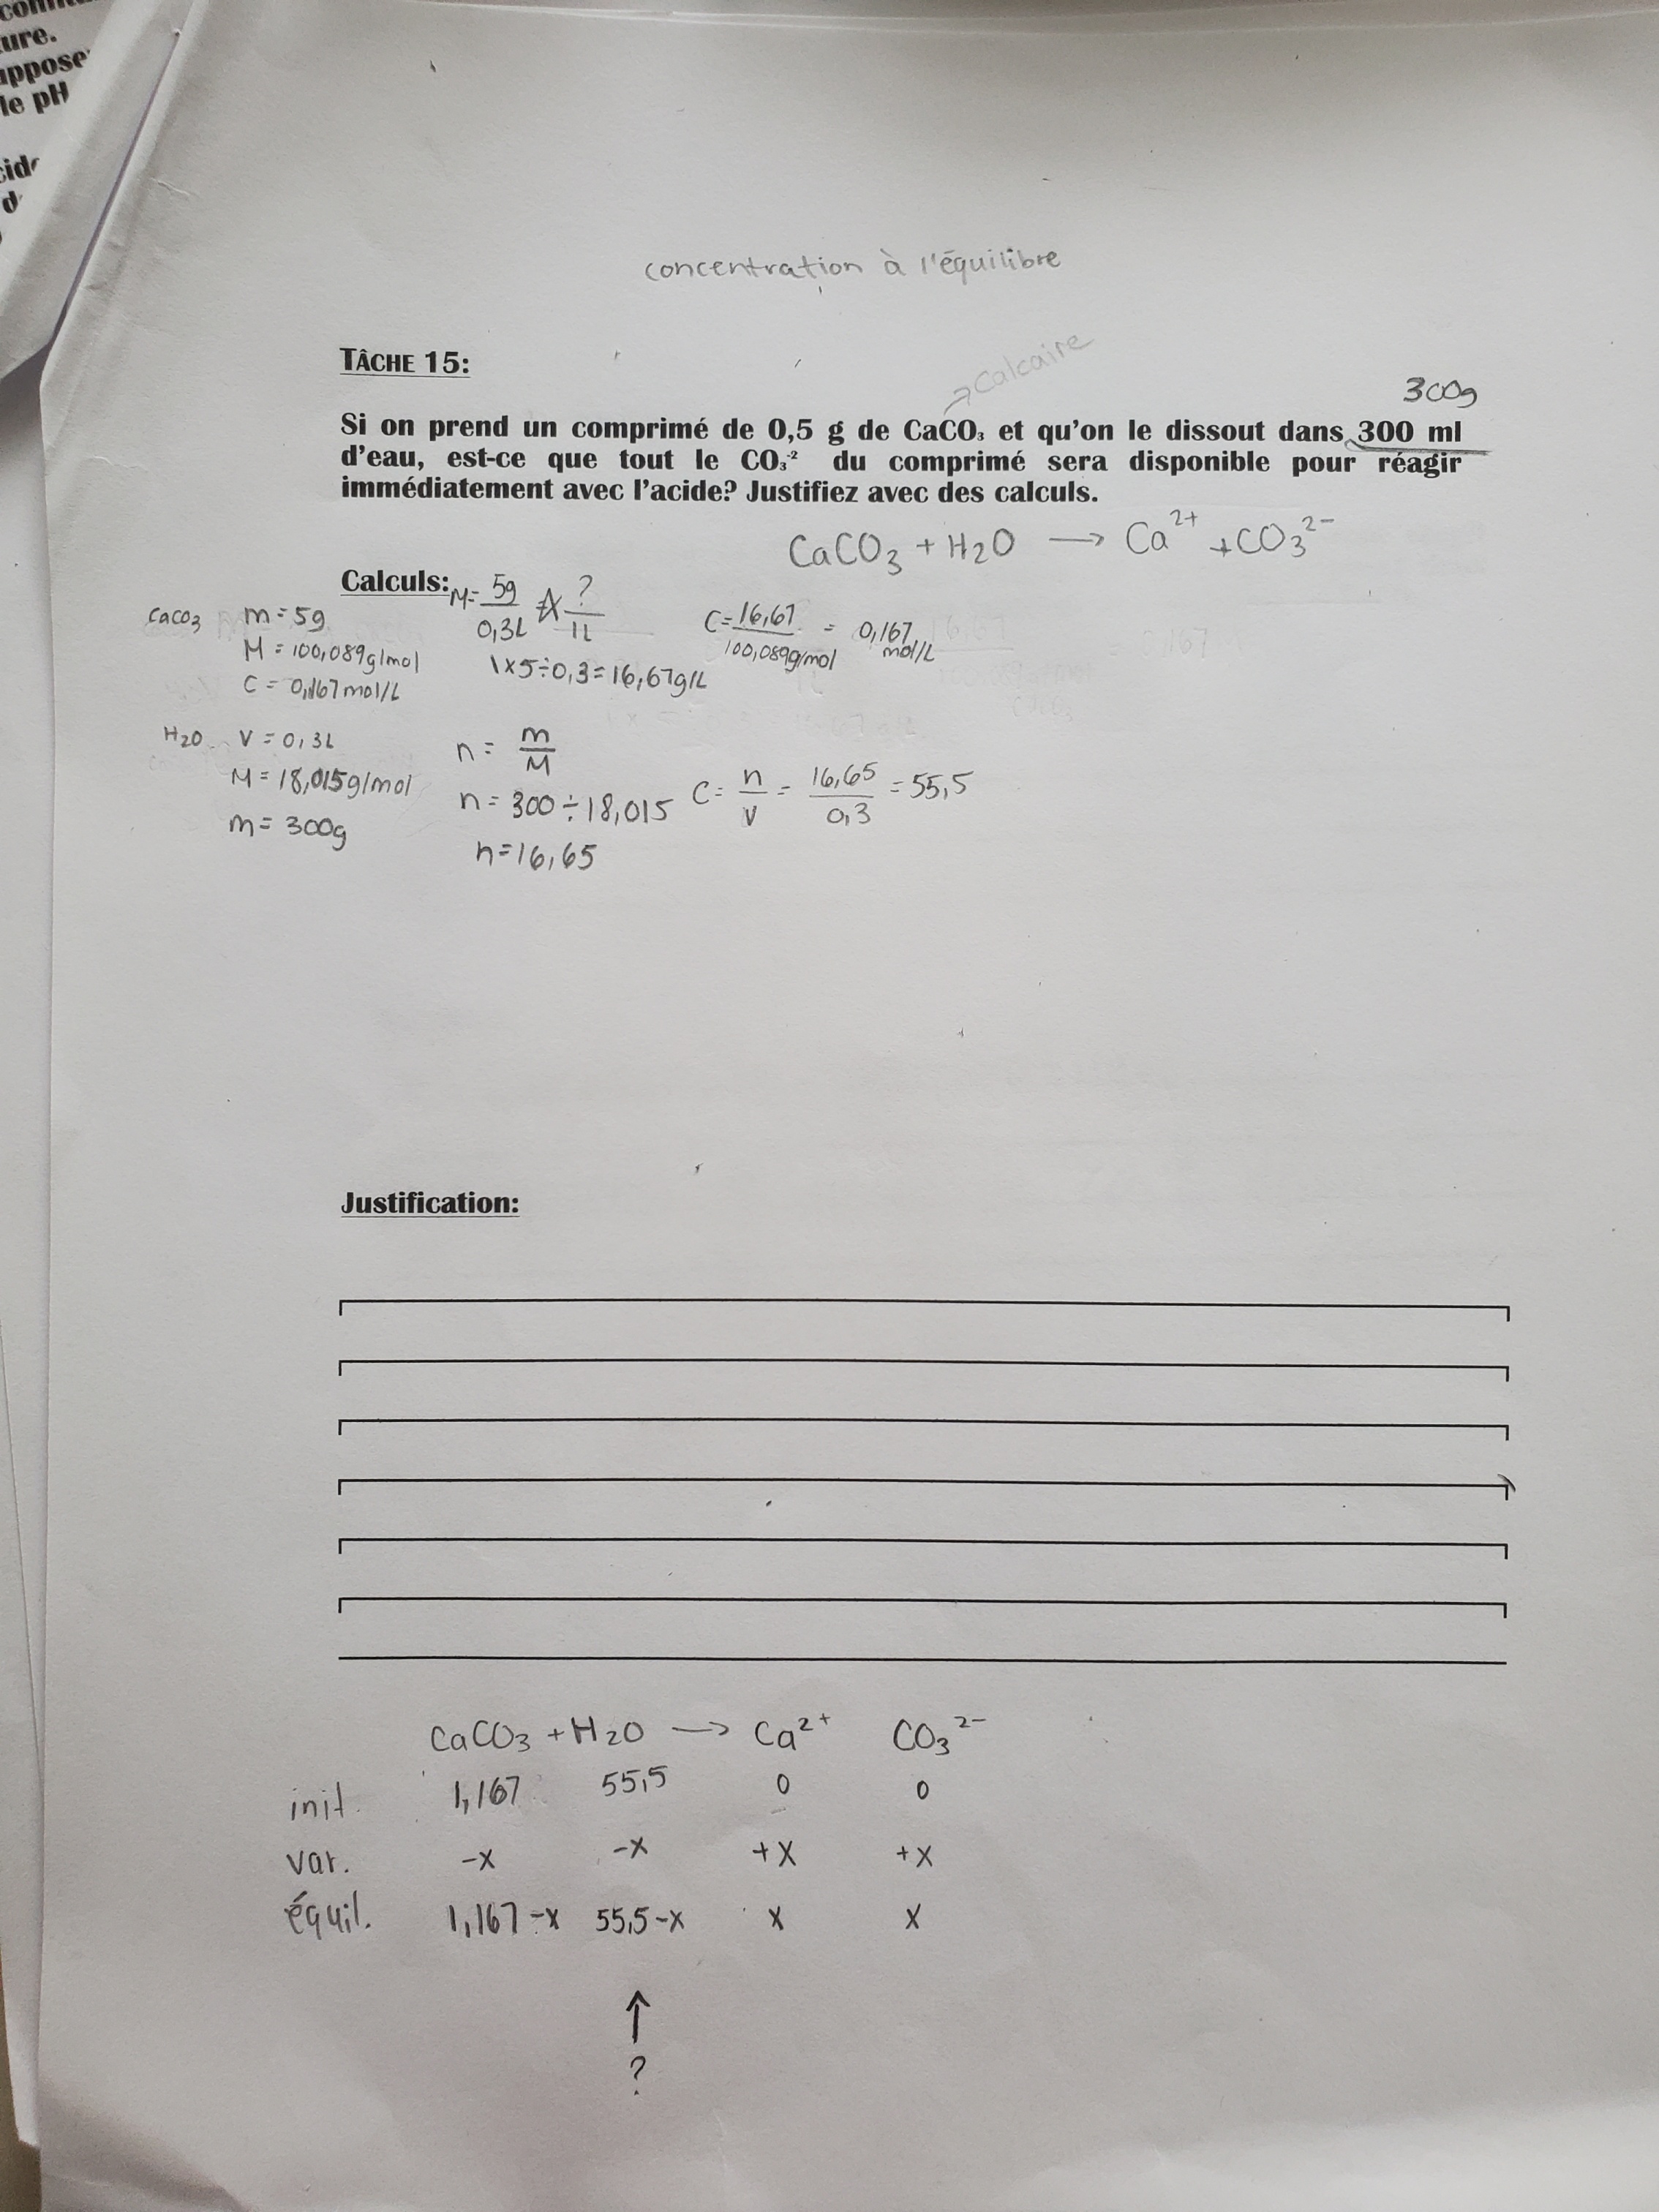 ure.
le pH
concentration à l'équilibre
TÂCHE 15:
→ Calcaire
300g
Si on prend un comprimé de 0,5 g de CaCO₃ et qu'on le dissout dans 300 ml
d'eau, est-ce que tout le CO₃⁻² du comprimé sera disponible pour réagir
immédiatement avec l'acide? Justifiez avec des calculs.
CaCO₃ + H₂O → Ca²⁺ + CO₃²⁻
Calculs:
CaCO₃ m = 5g
M = 100,089g/mol
C = 0,167mol/L
M = 5g/0,3L ?/1L
1x5÷0,3 = 16,67g/L
C = 16,67/100,089g/mol = 0,167 mol/L
H₂O V = 0,3L
M = 18,015g/mol
m = 300g
n = m/M
n = 300÷18,015
n = 16,65
C = n/V = 16,65/0,3 = 55,5
Justification:
CaCO₃ + H₂O → Ca²⁺ CO₃²⁻
init. 1,167 55,5 0 0
var. -x -x +x +x
équil. 1,167-x 55,5-x x x
↑
?